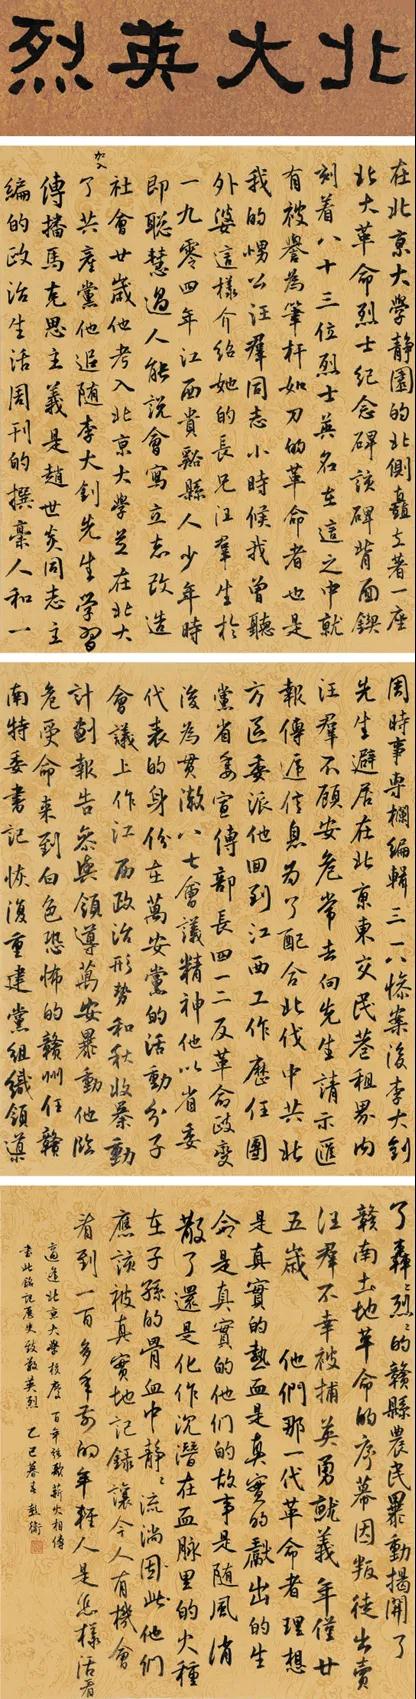 北大英烈
在北京大學静園的北側矗立著一座
北大革命烈士纪念碑該碑背面鍥
刻着八十三位烈士英名在這之中就
有被譽為筆杆如刀的革命者也是
我的甥公汪羣同志小時候我曾聽
外婆這樣介绍她的長兄汪羣生於
一九零四年江西貴谿縣人少年時
即聪慧過人能說會寫立志改造
社會廿歲他考入北京大學並在北大
加入
了共產黨他追随李大釗先生学習
傳播馬克思主義是趙世炎同志主
編的政治生活周刊的撰稾人和一
周時事專欄編輯三一八惨案後李大釗
先生避居在北京東交民巷租界内
汪羣不顧安危常去向先生請示匯
報傳遞信息為了配合北伐中共北
方區委派他回到江西工作歷任團
黨省委宣傳部長四一二反革命政變
後為貫澈八七會議精神他以省委
代表的身份在萬安黨的活動分子
會議上作江西政治形勢和秋收暴動
計劃報告參與領導萬安暴動他臨
危受命来到白色恐怖的贛州任贛
南特委書記恢復重建黨組織領導
了轟轟烈烈的贛縣農民暴動揭開了
贛南土地革命的序幕因叛徒出賣
汪羣不幸被捕英勇就義年僅廿
五歲 他們那一代革命者理想
是真實的熱血是真實的獻出的生
命是真實的他們的故事是随風消
散了還是化作沉潛在血脉里的火種
在子孫的骨血中静静流淌因此他們
應該被真實地記録讓今人有機會
看到一百多年前的年輕人是怎樣活着
適逢北京大學校慶百年詠歌薪火相傳
書此銘記歷史致敬英烈 乙巳暮春